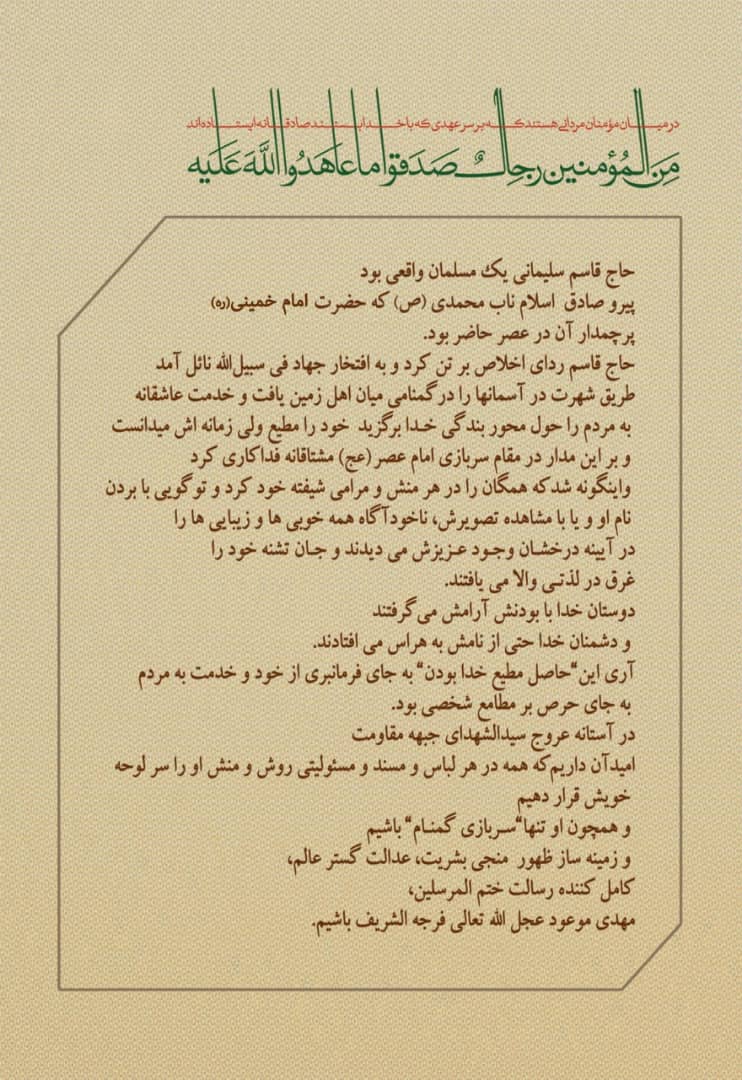 در میان مؤمنان مردانی هستند که بر سر عهدی که با خدا بستند صادقانه ایستاده‌اند
مِنَ الْمُؤمنین رجالٌ صَدَقوا ما عاهَدُوا اللَّهَ عَلَیه
حاج قاسم سلیمانی یک مسلمان واقعی بود
پیرو صادق اسلام ناب محمدی (ص) که حضرت امام خمینی(ره)
پرچمدار آن در عصر حاضر بود.
حاج قاسم ردای اخلاص بر تن کرد و به افتخار جهاد فی سبیل‌الله نائل آمد
طریق شهرت در آسمانها را در گمنامی میان اهل زمین یافت و خدمت عاشقانه
به مردم را حول محور بندگی خدا برگزید خود را مطیع ولی زمانه اش میدانست
و بر این مدار در مقام سربازی امام عصر (عج) مشتاقانه فداکاری کرد
واینگونه شد که همگان را در هر منش و مرامی شیفته خود کرد و تو گویی با بردن
نام او و یا با مشاهده تصویرش، ناخودآگاه همه خوبی ها و زیبایی ها را
در آیینه درخشان وجود عزیزش می دیدند و جان تشنه خود را
غرق در لذتی والا می یافتند.
دوستان خدا با بودنش آرامش می‌گرفتند
و دشمنان خدا حتی از نامش به هراس می افتادند.
آری این “حاصل مطیع خدا بودن“ به جای فرمانبری از خود و خدمت به مردم
به جای حرص بر مطامع شخصی بود.
در آستانه عروج سیدالشهدای جبهه مقاومت
امیدآن داریم که همه در هر لباس و مسند و مسئولیتی روش و منش او را سر لوحه
خویش قرار دهیم
و همچون او تنها “سربازی گمنام“ باشیم
و زمینه ساز ظهور منجی بشریت، عدالت گستر عالم،
کامل کننده رسالت ختم المرسلین،
مهدی موعود عجل الله تعالی فرجه الشریف باشیم.